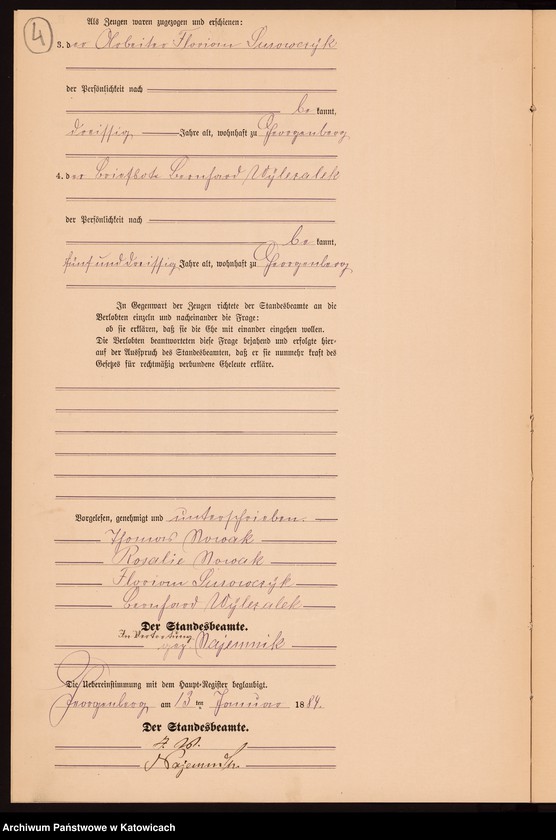 4
Als Zeugen waren zugezogen und erschienen:
3. der Arbeiter Florian Surowczyk
der Persönlichkeit nach
be kannt,
dreissig Jahre alt, wohnhaft zu Georgenberg
4. der Briefbote Bernhard Wylezalek
der Persönlichkeit nach
be kannt,
fünfunddreissig Jahre alt, wohnhaft zu Georgenberg
In Gegenwart der Zeugen richtete der Standesbeamte an die
Verlobten einzeln und nacheinander die Frage:
ob sie erklären, daß sie die Ehe mit einander eingehen wollen.
Die Verlobten beantworteten diese Frage bejahend und erfolgte hier-
auf der Ausspruch des Standesbeamten, daß er sie nunmehr kraft des
Gesetzes für rechtmäßig verbundene Eheleute erkläre.
Vorgelesen, genehmigt und unterschrieben.
Thomas Nowak
Rosalie Nowak
Florian Surowczyk
Bernhard Wylezalek
Der Standesbeamte.
In Vertretung
gez. Najemnik
Die Uebereinstimmung mit dem Haupt-Register beglaubigt.
Georgenberg am 13 ten Januar 1889.
Der Standesbeamte.
Najemnik
Archiwum Państwowe w Katowicach